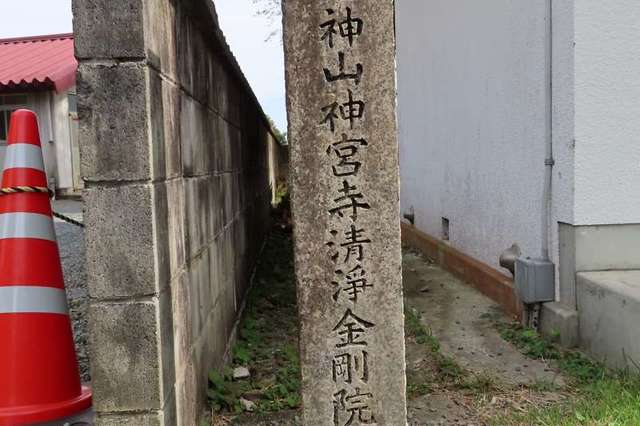 神山神宮寺清淨金剛院